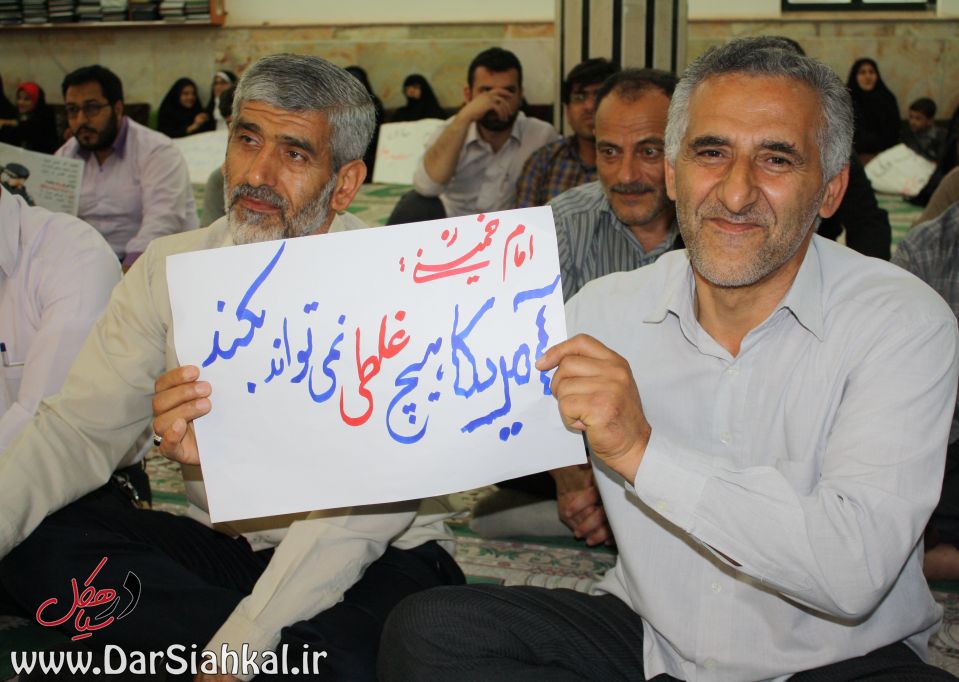 امام خمینی(ره):
آمریکا هیچ غلطی نمی تواند بکند
در سیاهکل
www.DarSiahkal.ir